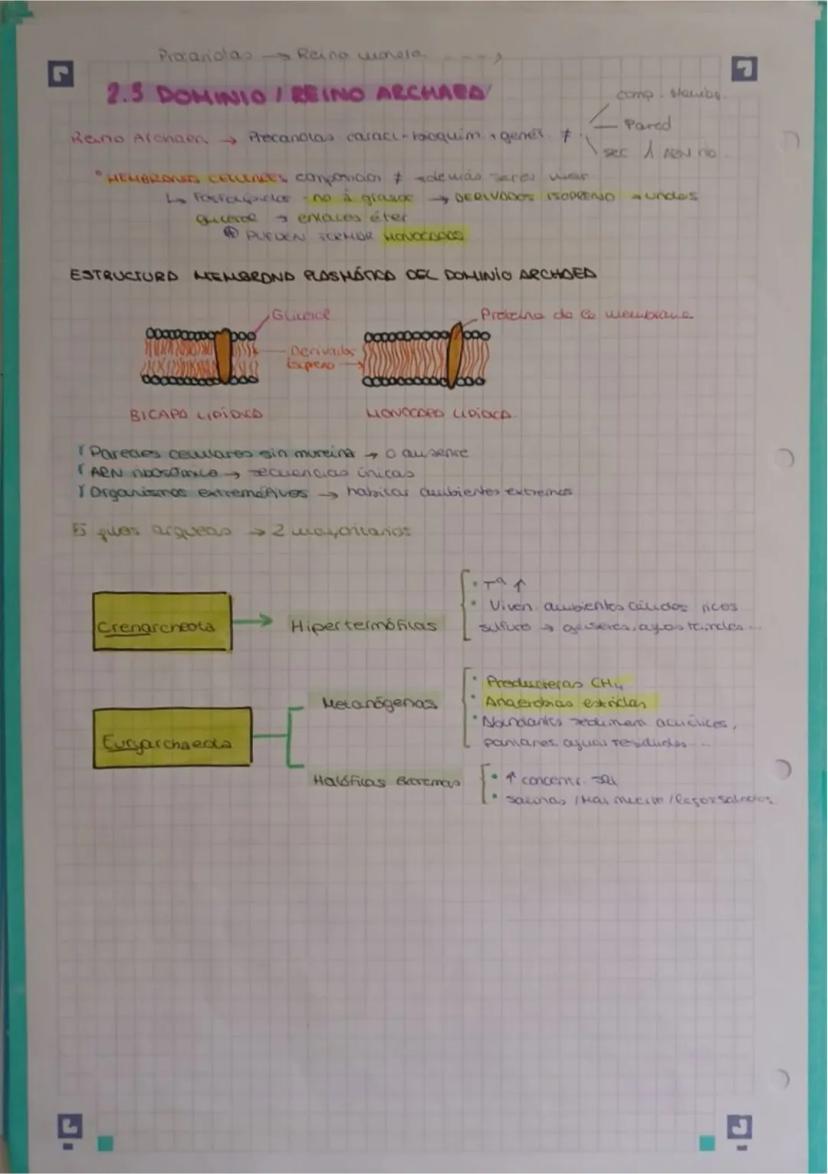 Procariotas → Reino monera
2.3 DOMINIO / REINO ARCHAEA
comp. Membr.
Reino Archaea → Procariotas caract. bioquím. + genét. ≠
Pared
sec ARN rib.
* MEMBRANAS CELULARES composición ≠ demás seres vivos
↳ Fosfolípidos - no á grasos → DERIVADOS ISOPRENO → unidos
glicerol → enlaces éter
PUEDEN FORMAR MONOCAPAS
ESTRUCTURA MEMBRANA PLASMÁTICA DEL DOMINIO ARCHAEA
Glicerol
Proteína de la membrana
Derivados
Isopreno
BICAPA LIPÍDICA
MONOCAPA LIPÍDICA
Paredes celulares sin mureína → o ausente
ARN ribosómico → secuencias únicas
Organismos extremófilos → habitan ambientes extremos
arqueas → 2 mayoritarios
Crenarcheota → Hipertermófilas
• Tª ↑
• Viven ambientes cálidos ricos
sulfuro → géiseres,
Euryarchaeota
Metanógenas
• Productoras CH₄
• Anaerobias estrictas
• Abundantes sediment. acuáticos,
pantanos, aguas residuales...
Halófilas Extremas
• ↑ concentr. sal
• Salinas / Mar muerto /